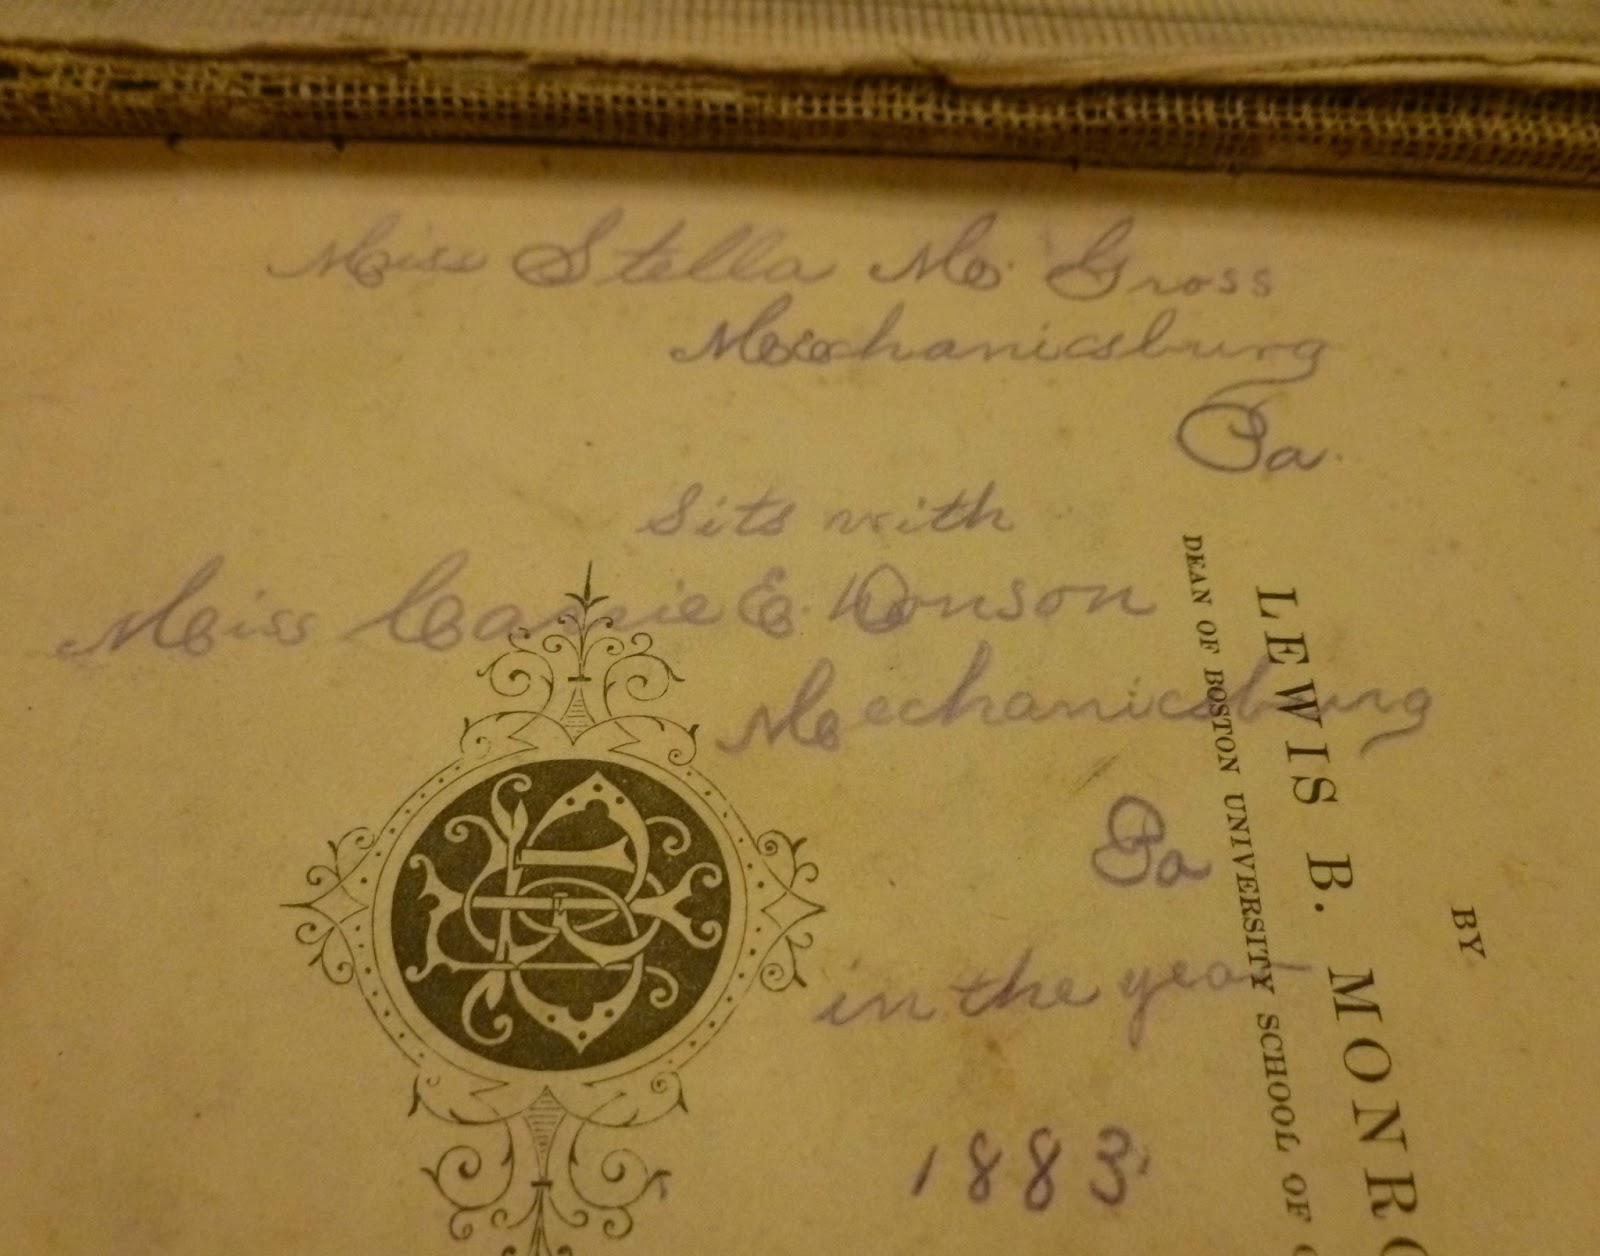 Miss Stella M. Gross
Mechanicsburg
Pa.
Sits with
Miss Carrie E. Honson
Mechanicsburg
Pa
in the year
1883
BY
LEWIS B. MONRO
DEAN OF BOSTON UNIVERSITY SCHOOL OF